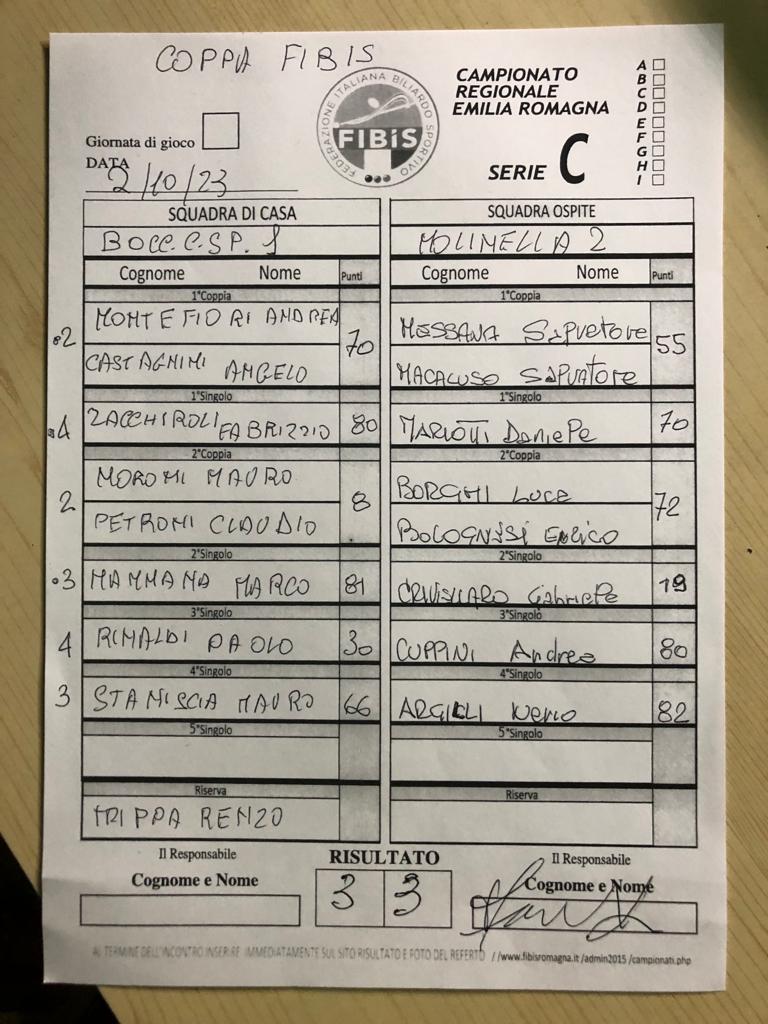 COPPA FIBIS
FEDERAZIONE ITALIANA BILIARDO SPORTIVO
FIBiS
CAMPIONATO
REGIONALE
EMILIA ROMAGNA
SERIE C
A
B
C
D
E
F
G
H
I
Giornata di gioco
DATA
2/10/23
SQUADRA DI CASA SQUADRA OSPITE
BOCC. C.SP. 1 MOLINELLA 2
Cognome Nome Punti Cognome Nome Punti
1°Coppia 1°Coppia
2 MONTEFIORI ANDREA 70 MESSANA Salvatore 55
CASTAGNINI ANGELO MACALUSO SALVATORE
1°Singolo 1°Singolo
4 ZACCHIROLI FABRIZZIO 80 MARIOTTI Daniele 70
2°Coppia 2°Coppia
2 MORONI MAURO 8 BORGHI LUCA 72
PETRONI CLAUDIO BOLOGNESI ENRICO
2°Singolo 2°Singolo
3 MAMMANA MARCO 81 Gabriele 19
3°Singolo 3°Singolo
4 RINALDI PAOLO 30 CUPPINI Andrea 80
4°Singolo 4°Singolo
3 STANISCIA MAURO 66 ARGILLI Nerio 82
5°Singolo 5°Singolo
Riserva Riserva
TRIPPA RENZO
Il Responsabile RISULTATO Il Responsabile
Cognome e Nome 3 3 Cognome e Nome
AL TERMINE DELL'INCONTRO INSERIRE IMMEDIATAMENTE SUL SITO RISULTATO E FOTO DEL REFERTO //www.fibisromagna.it /admin2015 /campionati.php